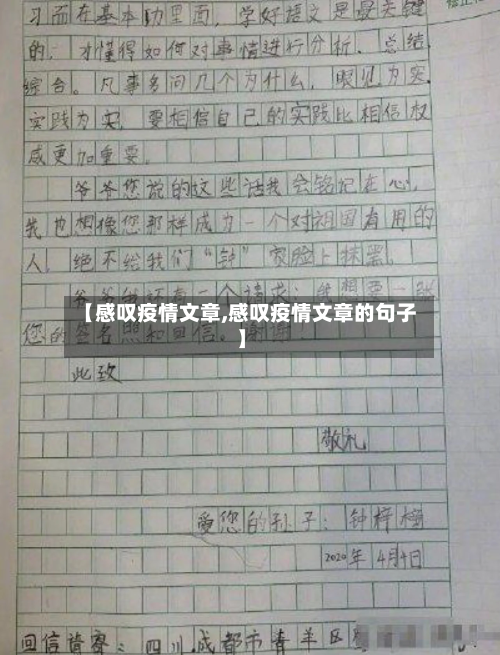 习而在基本功里面，学好语文是最关键
的，才懂得如何对事情进行分析、总结、
综合。凡事多问几个为什么，眼见为实，
实践为实，要相信自己的实践比相信权
威更加重要。
爷爷您说的这些话我会铭记在心，
我也想像您那样成为一个对祖国有用的
人，绝不给我们“钟”家脸上抹黑。
【感叹疫情文章,感叹疫情文章的句子
】
您的签名照和回信。谢谢
此致
敬礼
爱您的孙子：钟梓
2020年4月4日
回信皆寄：四川成都市青羊区